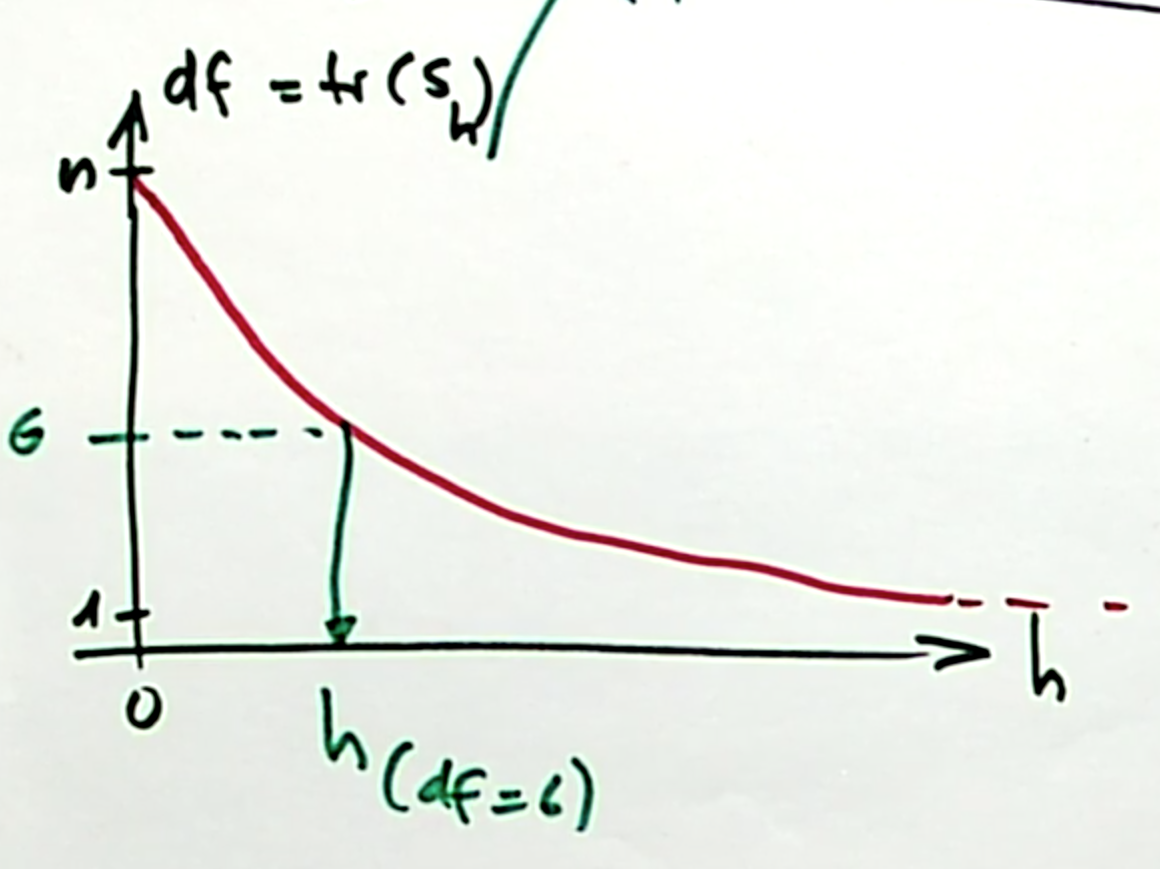 df = tr(S_h)
n
6
1
0
h
h(df=6)